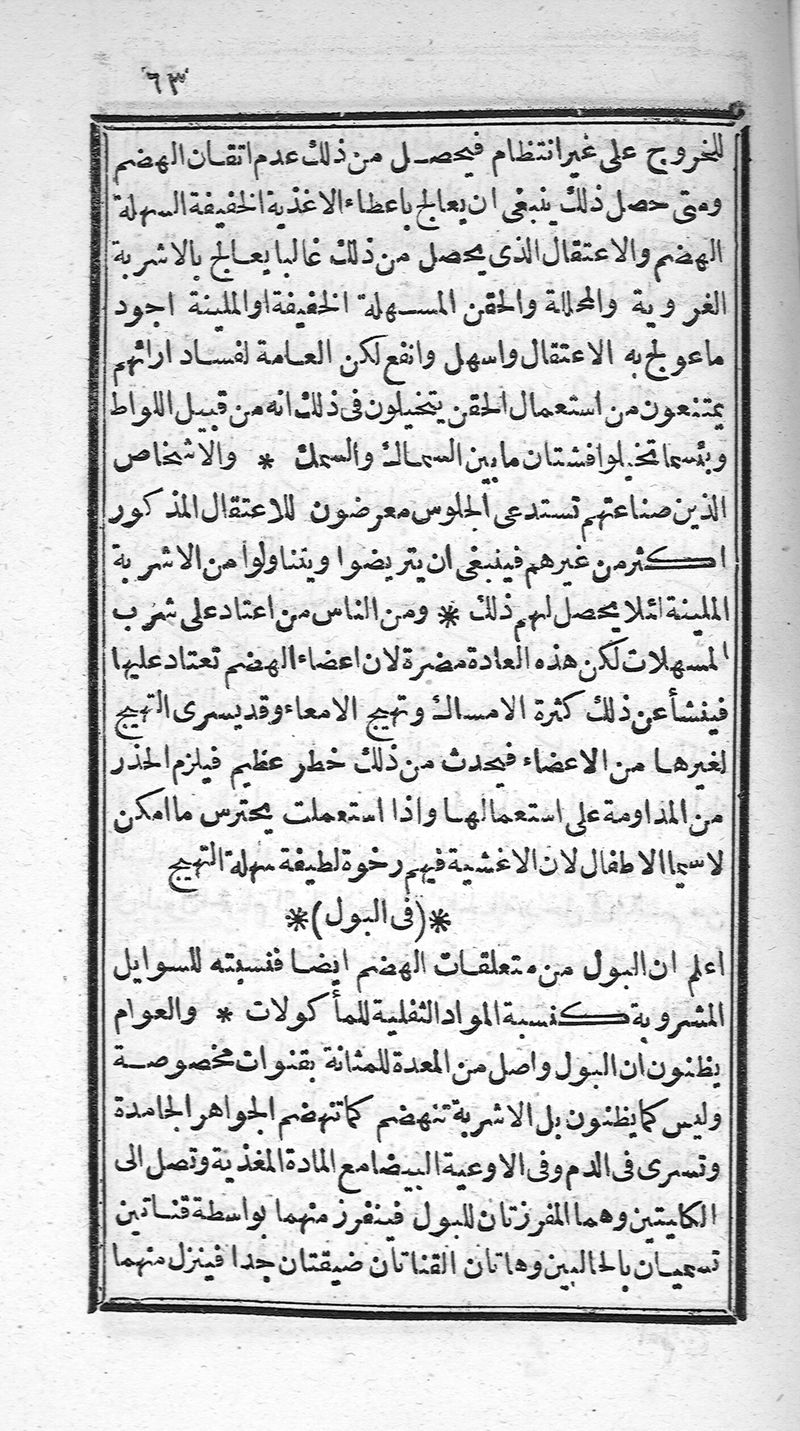 ٦٣
للخروج على غير انتظام فيحصل من ذلك عدم اتقان الهضم
ومتى حصل ذلك ينبغى ان يعالج باعطاء الاغذية الخفيفة السهلة
الهضم والاعتقال الذى يحصل من ذلك غالبا يعالج بالاشربة
الغروية والمحللة والحقن المسهلة الخفيفة او الملينة اجود
ما عولج به الاعتقال واسهل وانفع لكن العامة لفساد ارائهم
يمتنعون من استعمال الحقن يتخيلون فى ذلك انه من قبيل اللواط
وبئسما تخيلوا فشتان ما بين السماك والسمك * والاشخاص
الذين صناعتهم تستدعى الجلوس معرضون للاعتقال المذكور
اكثر من غيرهم فينبغى ان يتريضوا ويتناولوا من الاشربة
الملينة لئلا يحصل لهم ذلك * ومن الناس من اعتاد على شرب
المسهلات لكن هذه العادة مضرة لان اعضاء الهضم تعتاد عليها
فينشأ عن ذلك كثرة الامساك وتهيج الامعاء وقد يسرى التهيج
لغيرها من الاعضاء فيحدث من ذلك خطر عظيم فيلزم الحذر
من المداومة على استعمالها واذا استعملت يحترس ما امكن
لاسيما الاطفال لان الاغشية فيهم رخوة لطيفة سهلة التهيج
*(فى البول)*
اعلم ان البول من متعلقات الهضم ايضا فنسبته للسوايل
المشروبة كنسبة المواد الثفلية للمأكولات * والعوام
يظنون ان البول واصل من المعدة للمثانة بقنوات مخصوصة
وليس كما يظنون بل الاشربة تنهضم كما تنهضم الجواهر الجامدة
وتسرى فى الدم وفى الاوعية البيضا مع المادة المغذية وتصل الى
الكليتين وهما المفرزتان للبول فينفرز منهما بواسطة قناتين
تسميان بالحالبين وهاتان القناتان ضيقتان جدا فينزل منهما